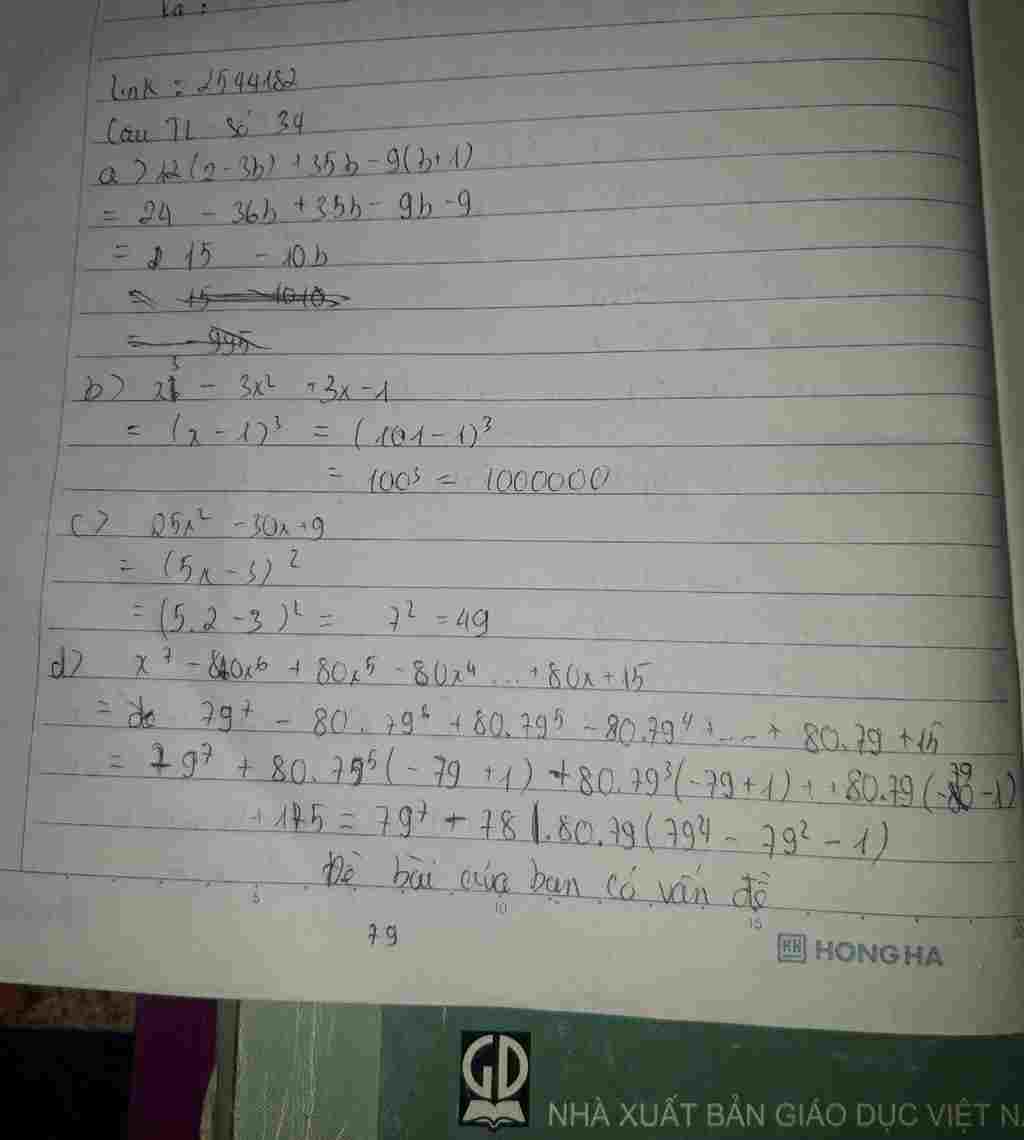 link = 2594182
Câu TL số 34
a) 12(2-3b) + 35b - 9(b+1)
= 24 - 36b + 35b - 9b - 9
= 15 - 10b
= 15 - 1010
= - 995
b) x³ - 3x² + 3x - 1
= (x - 1)³ = (101 - 1)³
= 100³ = 1000000
c) 25x² - 30x + 9
= (5x - 3)²
= (5.2 - 3)² = 7² = 49
d) x⁷ - 80x⁶ + 80x⁵ - 80x⁴ ... + 80x + 15
= 79⁷ - 80.79⁶ + 80.79⁵ - 80.79⁴ + ... + 80.79 + 15
= 79⁷ + 80.79⁵(-79 + 1) + 80.79³(-79 + 1) + 80.79(-79 - 1)
+ 15 = 79⁷ + 78.80.79(79⁴ - 79² - 1)
Đề bài của bạn có vấn đề
5 10 15
79
HH HONG HA
GD
NHÀ XUẤT BẢN GIÁO DỤC VIỆT N